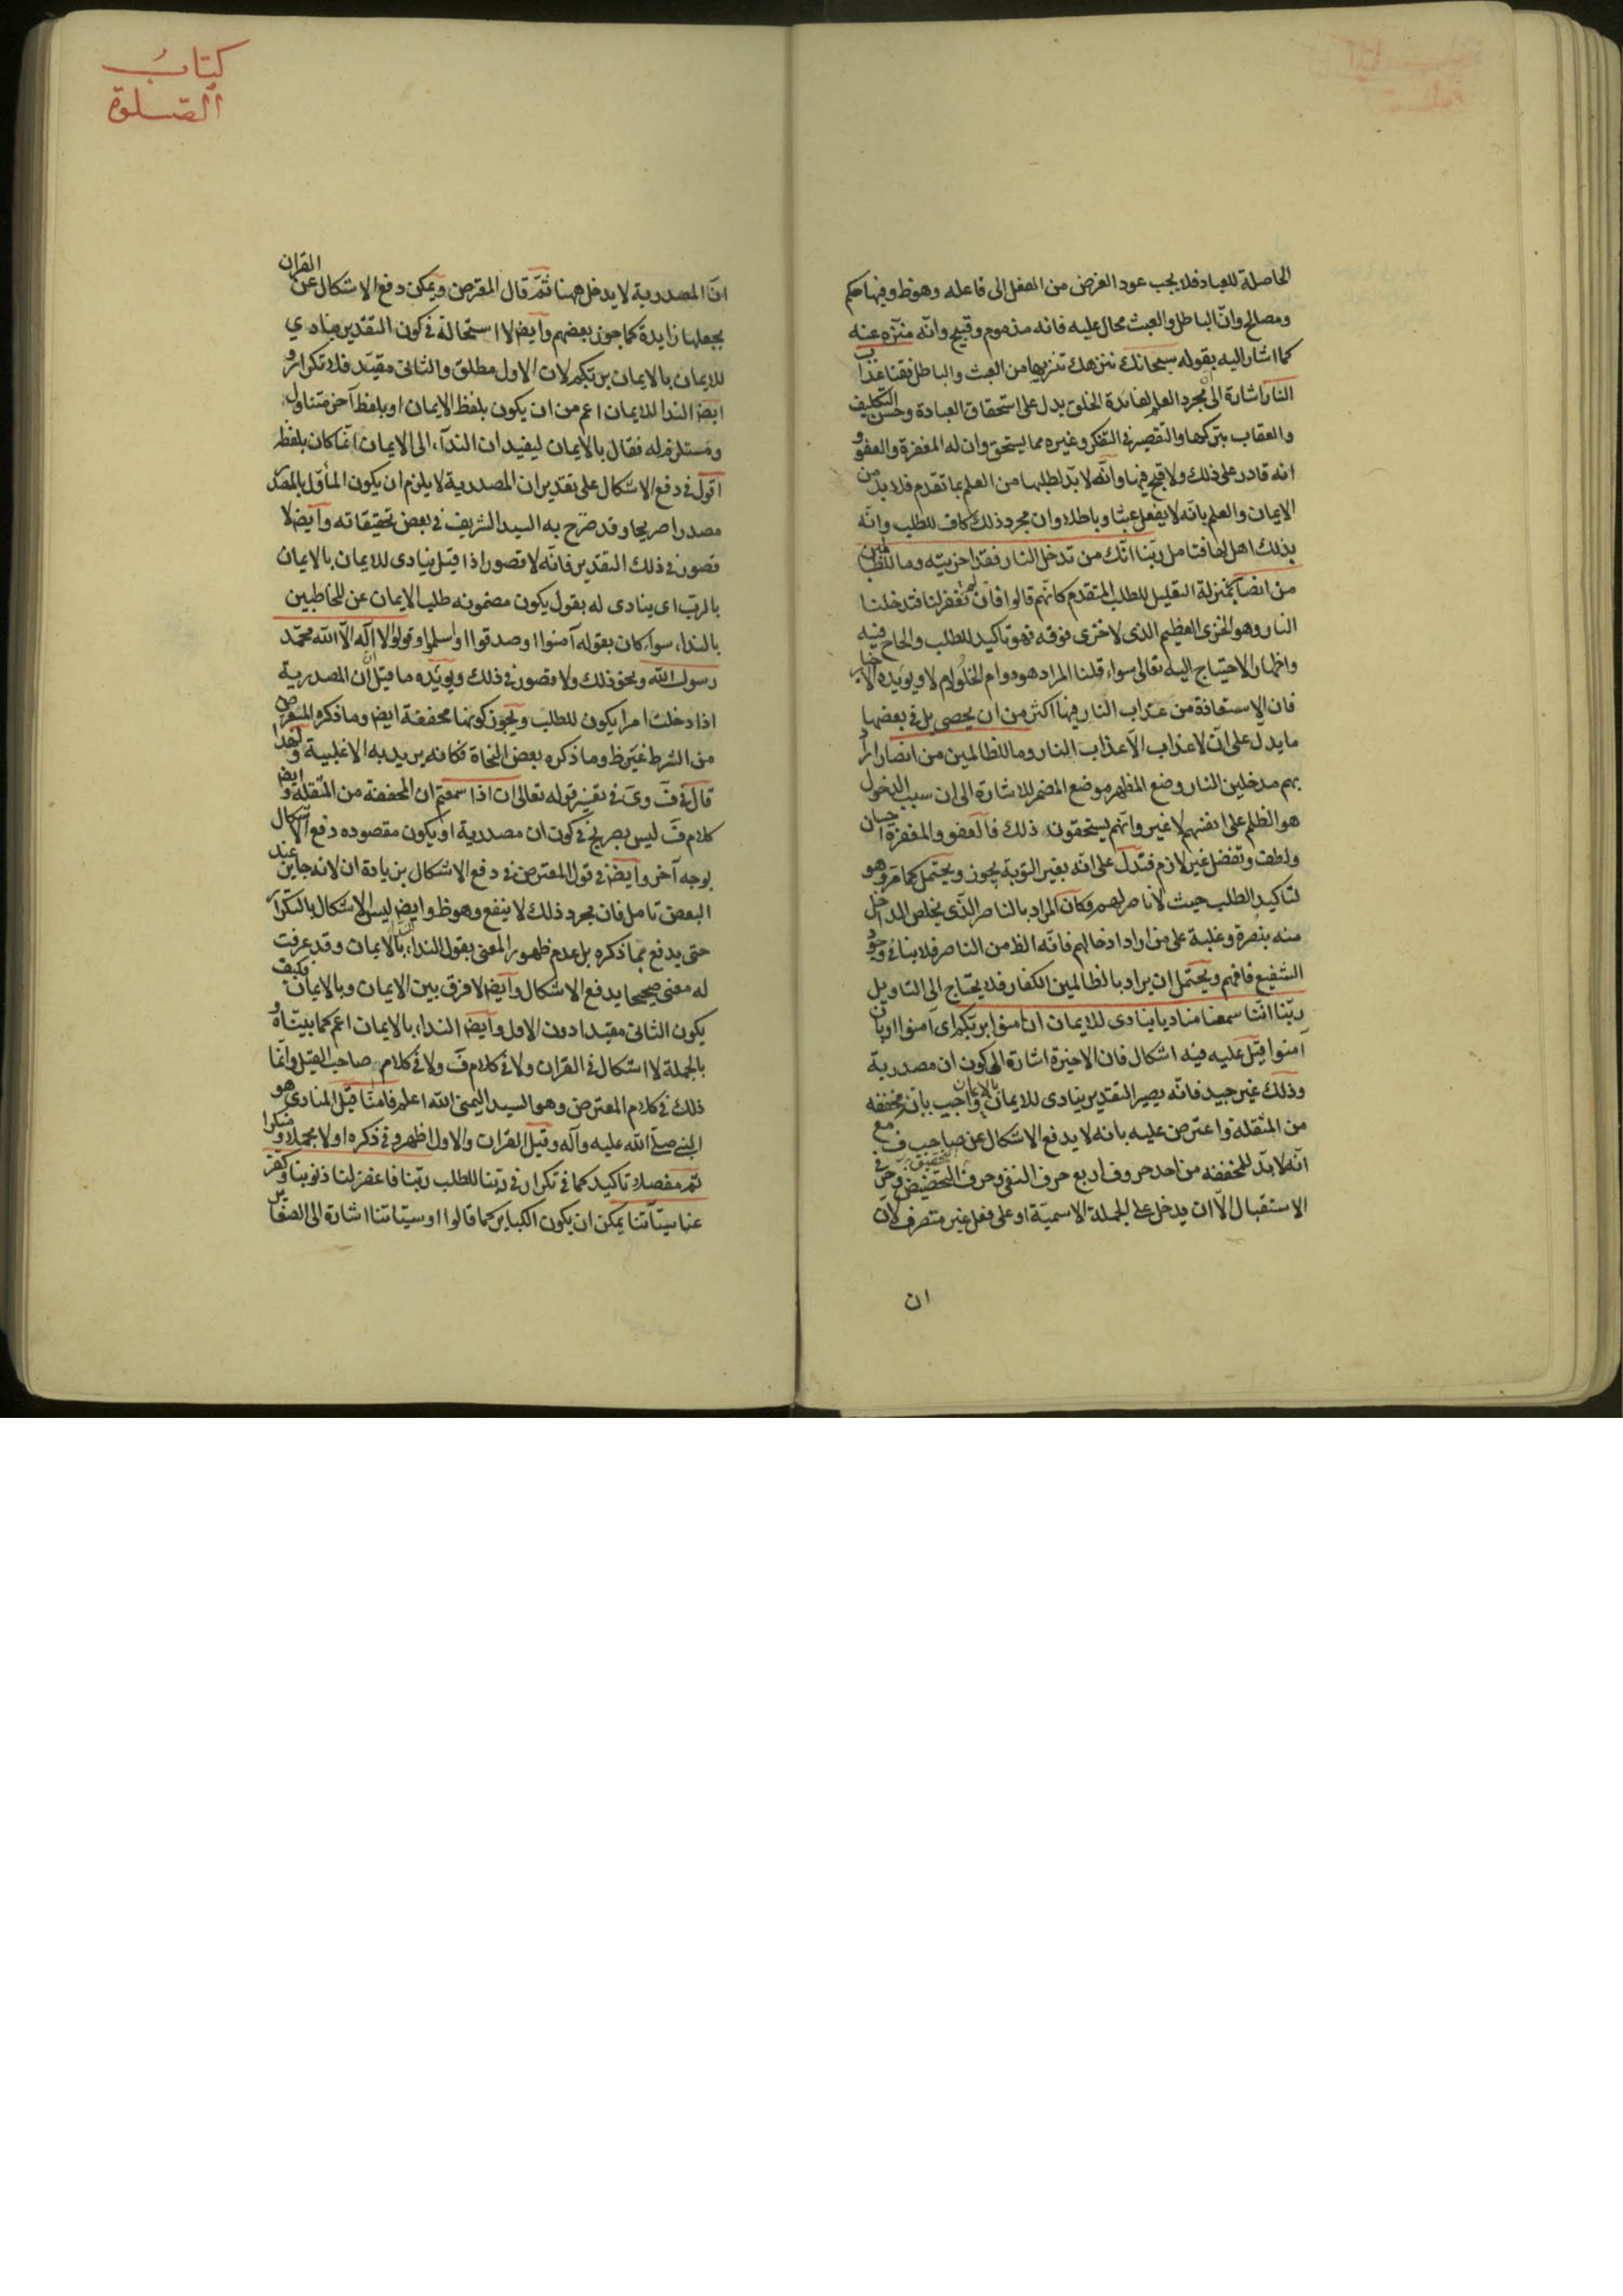 الحاصلة للعباد فلا يجب عود الغرض من الفعل الى فاعله وهو ظ وفيها حكم
ومصالح وانّ الباطل والعبث محال عليه فانه مذموم وقبيح وانّه منزّه عنه
كما اشار اليه بقوله سبحانك ننزهك تنزيها من العبث والباطل فقنا عذاب
النار اشارة الى مجرد العلم لفائدة الخلق يدل على استحقاق العبادة وحسن التكليف
والعقاب بتركها والتقصير في التفكر وغيره مما يستحق وان له المغفرة والعفو و
انه قادر على ذلك ولا قبح فيها وانّه لا بدّ لطلبها من العلم بما تقدم فلا بد من
الايمان والعلم بانّه لا يفعل عبثا وباطلا وان مجرد ذلك كاف للطلب وانّه
بذلك اهل لها فتامل ربّنا انّك من تدخل النار فقد اخزيته وما للظالمين
من انصار بمنزلة التعليل للطلب المتقدم كانّهم قالوا فان لم تغفر لنا فتدخلنا
النار وهو الخزى العظيم الذى لا خزى فوقه فهو تاكيد للطلب والحاح فيه
واظهار الاحتياج اليه تعالى سواء قلنا المراد هو دوام الخلود ام لا ويؤيده الاخبار
فان الاستعاذة من عذاب النار فيها اكثر من ان يحصى بل في بعضها
ما يدل على انّ لا عذاب الّا عذاب النار وما للظالمين من انصار اراد
بهم مدخلين النار وضع المظهر موضع المضمر للاشارة الى ان سبب الدخول
هو الظلم على انفسهم لا غير وانّهم يستحقون ذلك فالعفو والمغفرة احسان
ولطف وتفضل غير لازم فتدلّ على انّه بغير التوبة يجوز ويحتمل كما مرّ وهو
لتاكيد الطلب حيث لا ناصر لهم وكان المراد بالناصر الّذى يخلص الداخل
منه بنصرة وغلبة على من اراد ادخالهم فانّه الظ من الناصر فلا ينافي وجود
الشفيع فافهم ويحتمل ان يراد بالظالمين الكفار فلا يحتاج الى التاويل
ربّنا انّنا سمعنا مناديا ينادى للايمان ان امنوا بربّكم اى آمنوا او بان
آمنوا قيل عليه فيه اشكال فان الاخيرة اشارة الى كون ان مصدرية
وذلك غير جيد فانّه يصير التقدير ينادى للايمان بالايمان واجيب بانّه مخففه
من المثقلة واعترض عليه بانه لا يدفع الاشكال عن صاحب ف مع
انّه لا بدّ للمخففه من احد حروف اربع حرف النفى وحرف التحضيض وحرفي
الاستقبال الّا ان يدخل على الجملة الاسميّة او على فعل غير متصرف لانّ
ان
كتاب
الصلوة
انّ المصدرية لا يدخل ههنا ثمّ قال المعترض ويمكن دفع الاشكال عن القران
بجعلها زايدة كما جوز بعضهم وايض لا استحالة في كون التقدير ينادي
للايمان بالايمان بربّكم لان الاول مطلق والثانى مقيّد فلا تكرار و
ايض الندا للايمان اعم من ان يكون بلفظ الايمان او بلفظ آخر متناول
ومستلزم له فقال بالايمان ليفيد ان الندآء الى الايمان انّما كان بلفظه
اقول في دفع الاشكال على تقدير ان المصدرية لا يلزم ان يكون المأوّل بالمصدر
مصدرا صريحا وقد صرّح به السيد الشريف في بعض تحقيقاته وايض لا
قصور في ذلك التقدير فانّه لا قصور اذا قيل ينادى للايمان بالايمان
بالرب اى ينادى له بقول يكون مضمونه طلب الايمان عن المخاطبين
بالنداء سواء كان بقوله آمنوا او صدقوا او اسلموا وقولوا لا اله الّا الله محمّد
رسول الله ونحو ذلك ولا قصور في ذلك ويؤيّده ما قيل انّ المصدرية
اذا دخلت امرا يكون للطلب ويجوز كونها مخففة ايض وما ذكره المعترض
من الشرط غير ظ وما ذكره بعض النحاة فكانه يريد به الاغلبية ولهذا
قال في ف وى في تفسير قوله تعالى ان اذا سمعتم ان المخففة من المثقلة وايض
كلام ف ليس بصريح في كون ان مصدرية او يكون مقصوده دفع الاشكال
بوجه آخر وايض في قول المعترض في دفع الاشكال بزيادة ان لانه جايز عند
البعض تامل فان مجرد ذلك لا ينفع وهو ظ وايض ليس الاشكال بالتكرار
حتى يدفع بما ذكره بل عدم ظهور المعنى بقول النداء بالايمان وقد عرفت
له معنى صحيحا يدفع الاشكال وايض لا فرق بين الايمان وبالايمان فكيف
يكون الثانى مقيدا دون الاول وايض النداء بالايمان اعم كما بيّناه و
بالجملة لا اشكال في القران ولا في كلام ف ولا في كلام صاحب القيل وانّما
ذلك في كلام المعترض وهو السيد اليمنى الله اعلم فامنّا قيل المنادى هو
النبى صلّى الله عليه وآله وقيل القران والاول اظهر وفي ذكره اولا مجملا ومنكرا
ثم مفصلا تاكيد كما في تكرار في ربّنا للطلب ربّنا فاغفر لنا ذنوبنا وكفر
عنا سيّآتنا يمكن ان يكون الكباير كما قالوا او سيّئاتنا اشارة الى الصغاير